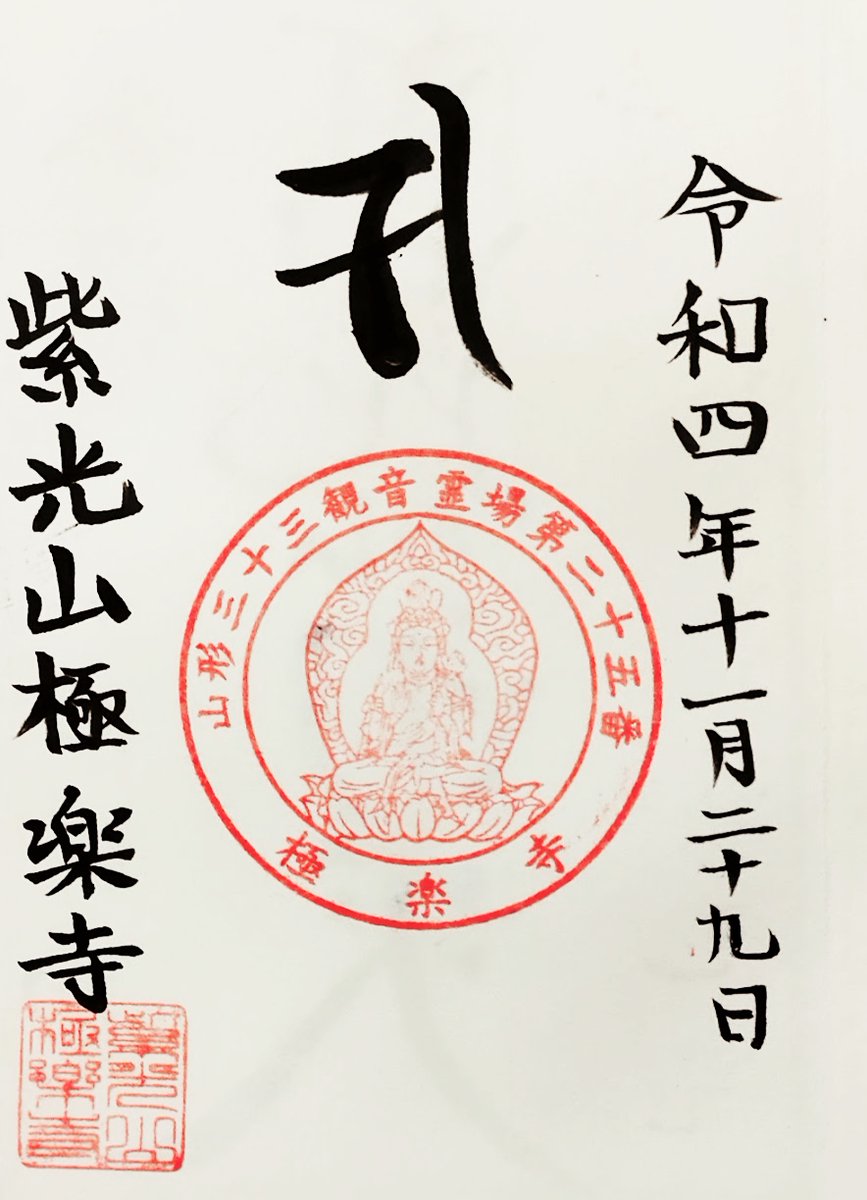 令和四年十一月二十九日
山形三十三観音霊場第二十五番
極楽寺
紫光山極楽寺
紫光山
極楽寺